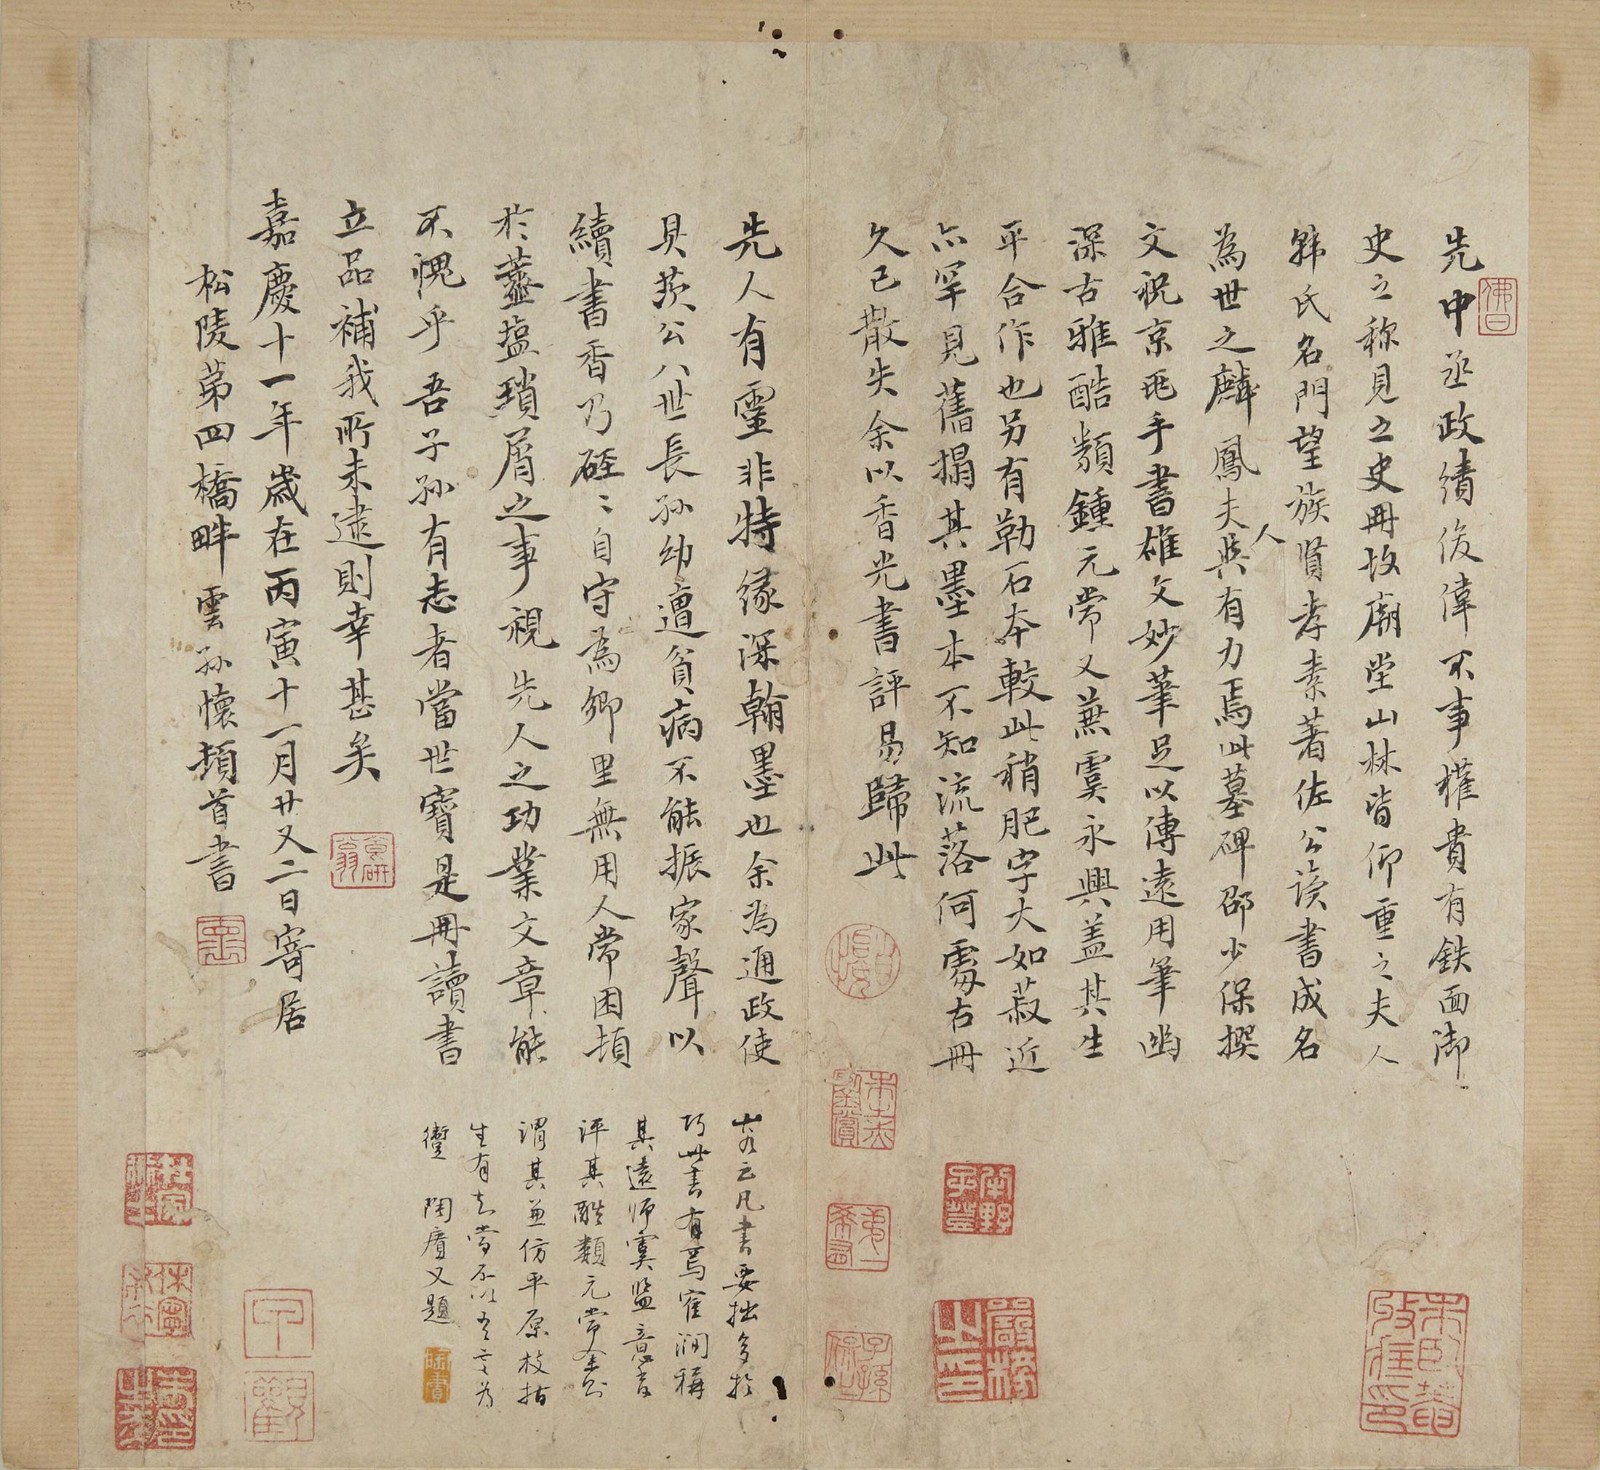 先中丞政績俊偉不事權貴有鉄面御
史之称見之史冊故廟堂山林皆仰重之夫人
韩氏名門望族賢孝素著佐公讀書成名
為世之麟鳳夫人與有力焉此墓碑邵少保撰
文祝京兆手書雄文妙筆足以傳遠用筆幽
深古雅酷類鍾元常又兼虞永興盖其生
平合作也另有勒石本較此稍肥字大如菽近
亦罕見舊搨其墨本不知流落何處右冊
久已散失余以香光書評易歸此
先人有靈非特緣深翰墨也余為通政使
貝羨公八世長孫幼遭貧病不能振家聲以
續書香乃硁〻自守為鄉里無用人常困頓
於虀塩瑣屑之事視先人之功業文章能
不愧乎吾子孫有志者當世寶是冊讀書
立品補我所未逮則幸甚矣
嘉慶十一年歲在丙寅十一月廿又二日寄居
松陵苐四橋畔雲孫懷頓首書
云凡書要拙多於
巧此書有焉寉澗稱
其遠師虞監意者
評其酷類元常余則
謂其兼仿平原枝指
生有知當不以吾言為
陶賡又題